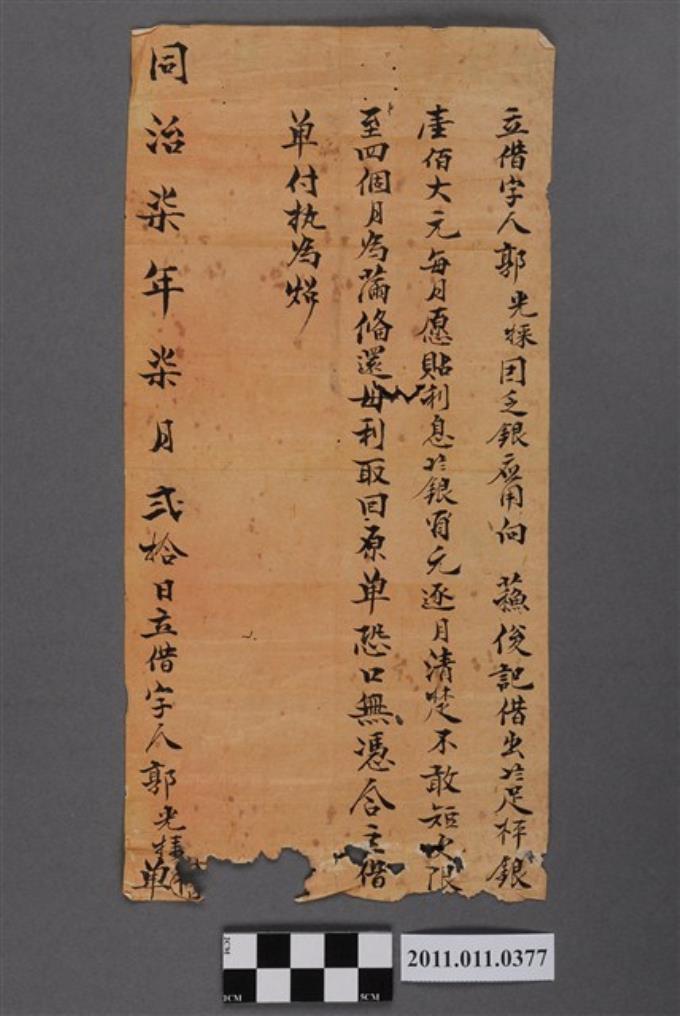 立借字人郭光㨂因乏銀應用向蘓俊記借出足秤銀
壹佰大元每月愿貼利息銀元逐月清楚不敢短欠限
至四個月為滿偹還母利取回原单恐口無憑合立借
单付执為炤
同治柒年柒月弍拾日立借字人郭光单
2CM
1CM
5CM
2011.011.0377